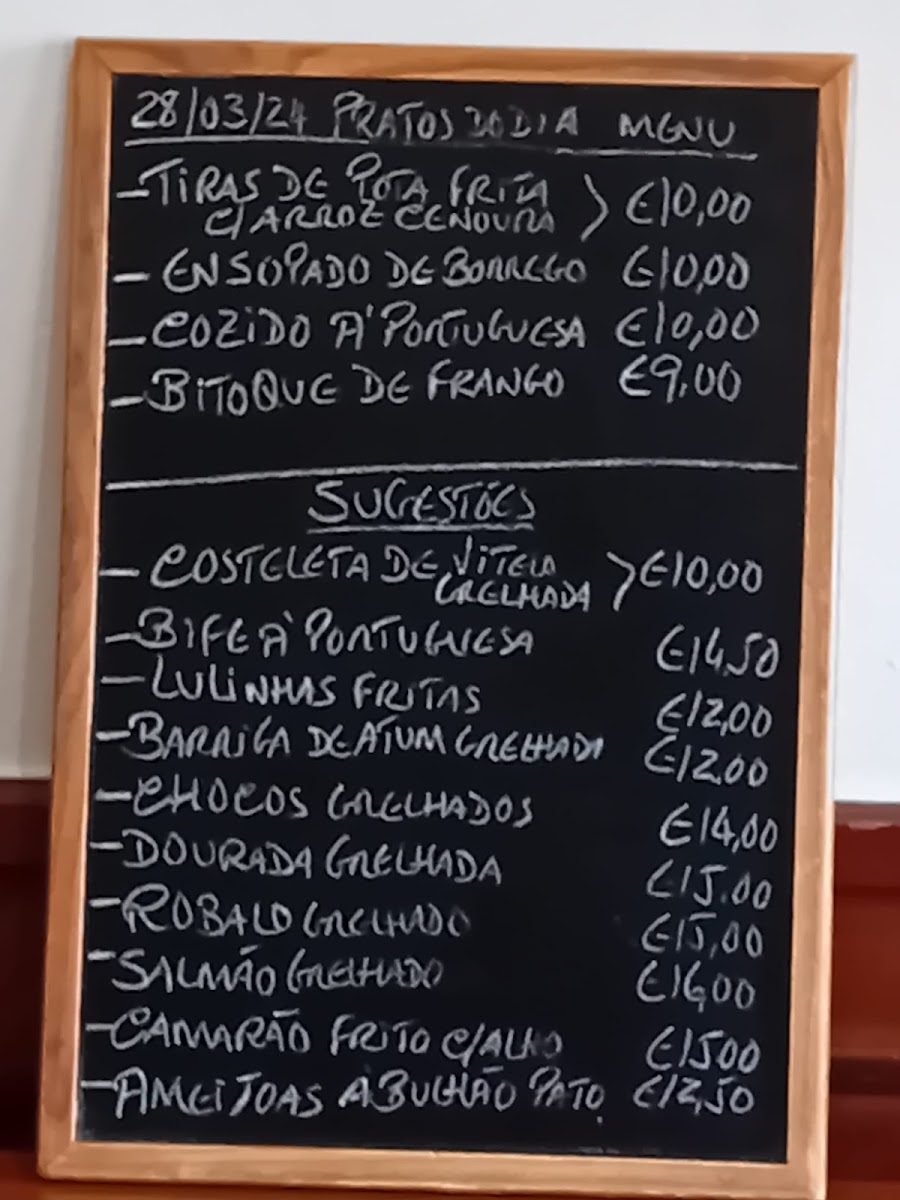 28/03/24 PRATOS DO DIA MENU
- TIRAS DE POTA FRITA
C/ ARROZ CENOURA > €10,00
- ENSOPADO DE BORREGO €10,00
- COZIDO À PORTUGUESA €10,00
- BITOQUE DE FRANGO €9,00
SUGESTÕES
- COSTELETA DE VITELA
GRELHADA > €10,00
- BIFE À PORTUGUESA €14,50
- LULINHAS FRITAS €12,00
- BARRIGA DE ATUM GRELHADA €12,00
- CHOCOS GRELHADOS €14,00
- DOURADA GRELHADA €15.00
- ROBALO GRELHADO €15,00
- SALMÃO GRELHADO €16,00
- CAMARÃO FRITO C/ALHO €1500
- AMEIJOAS À BULHÃO PATO €12,50